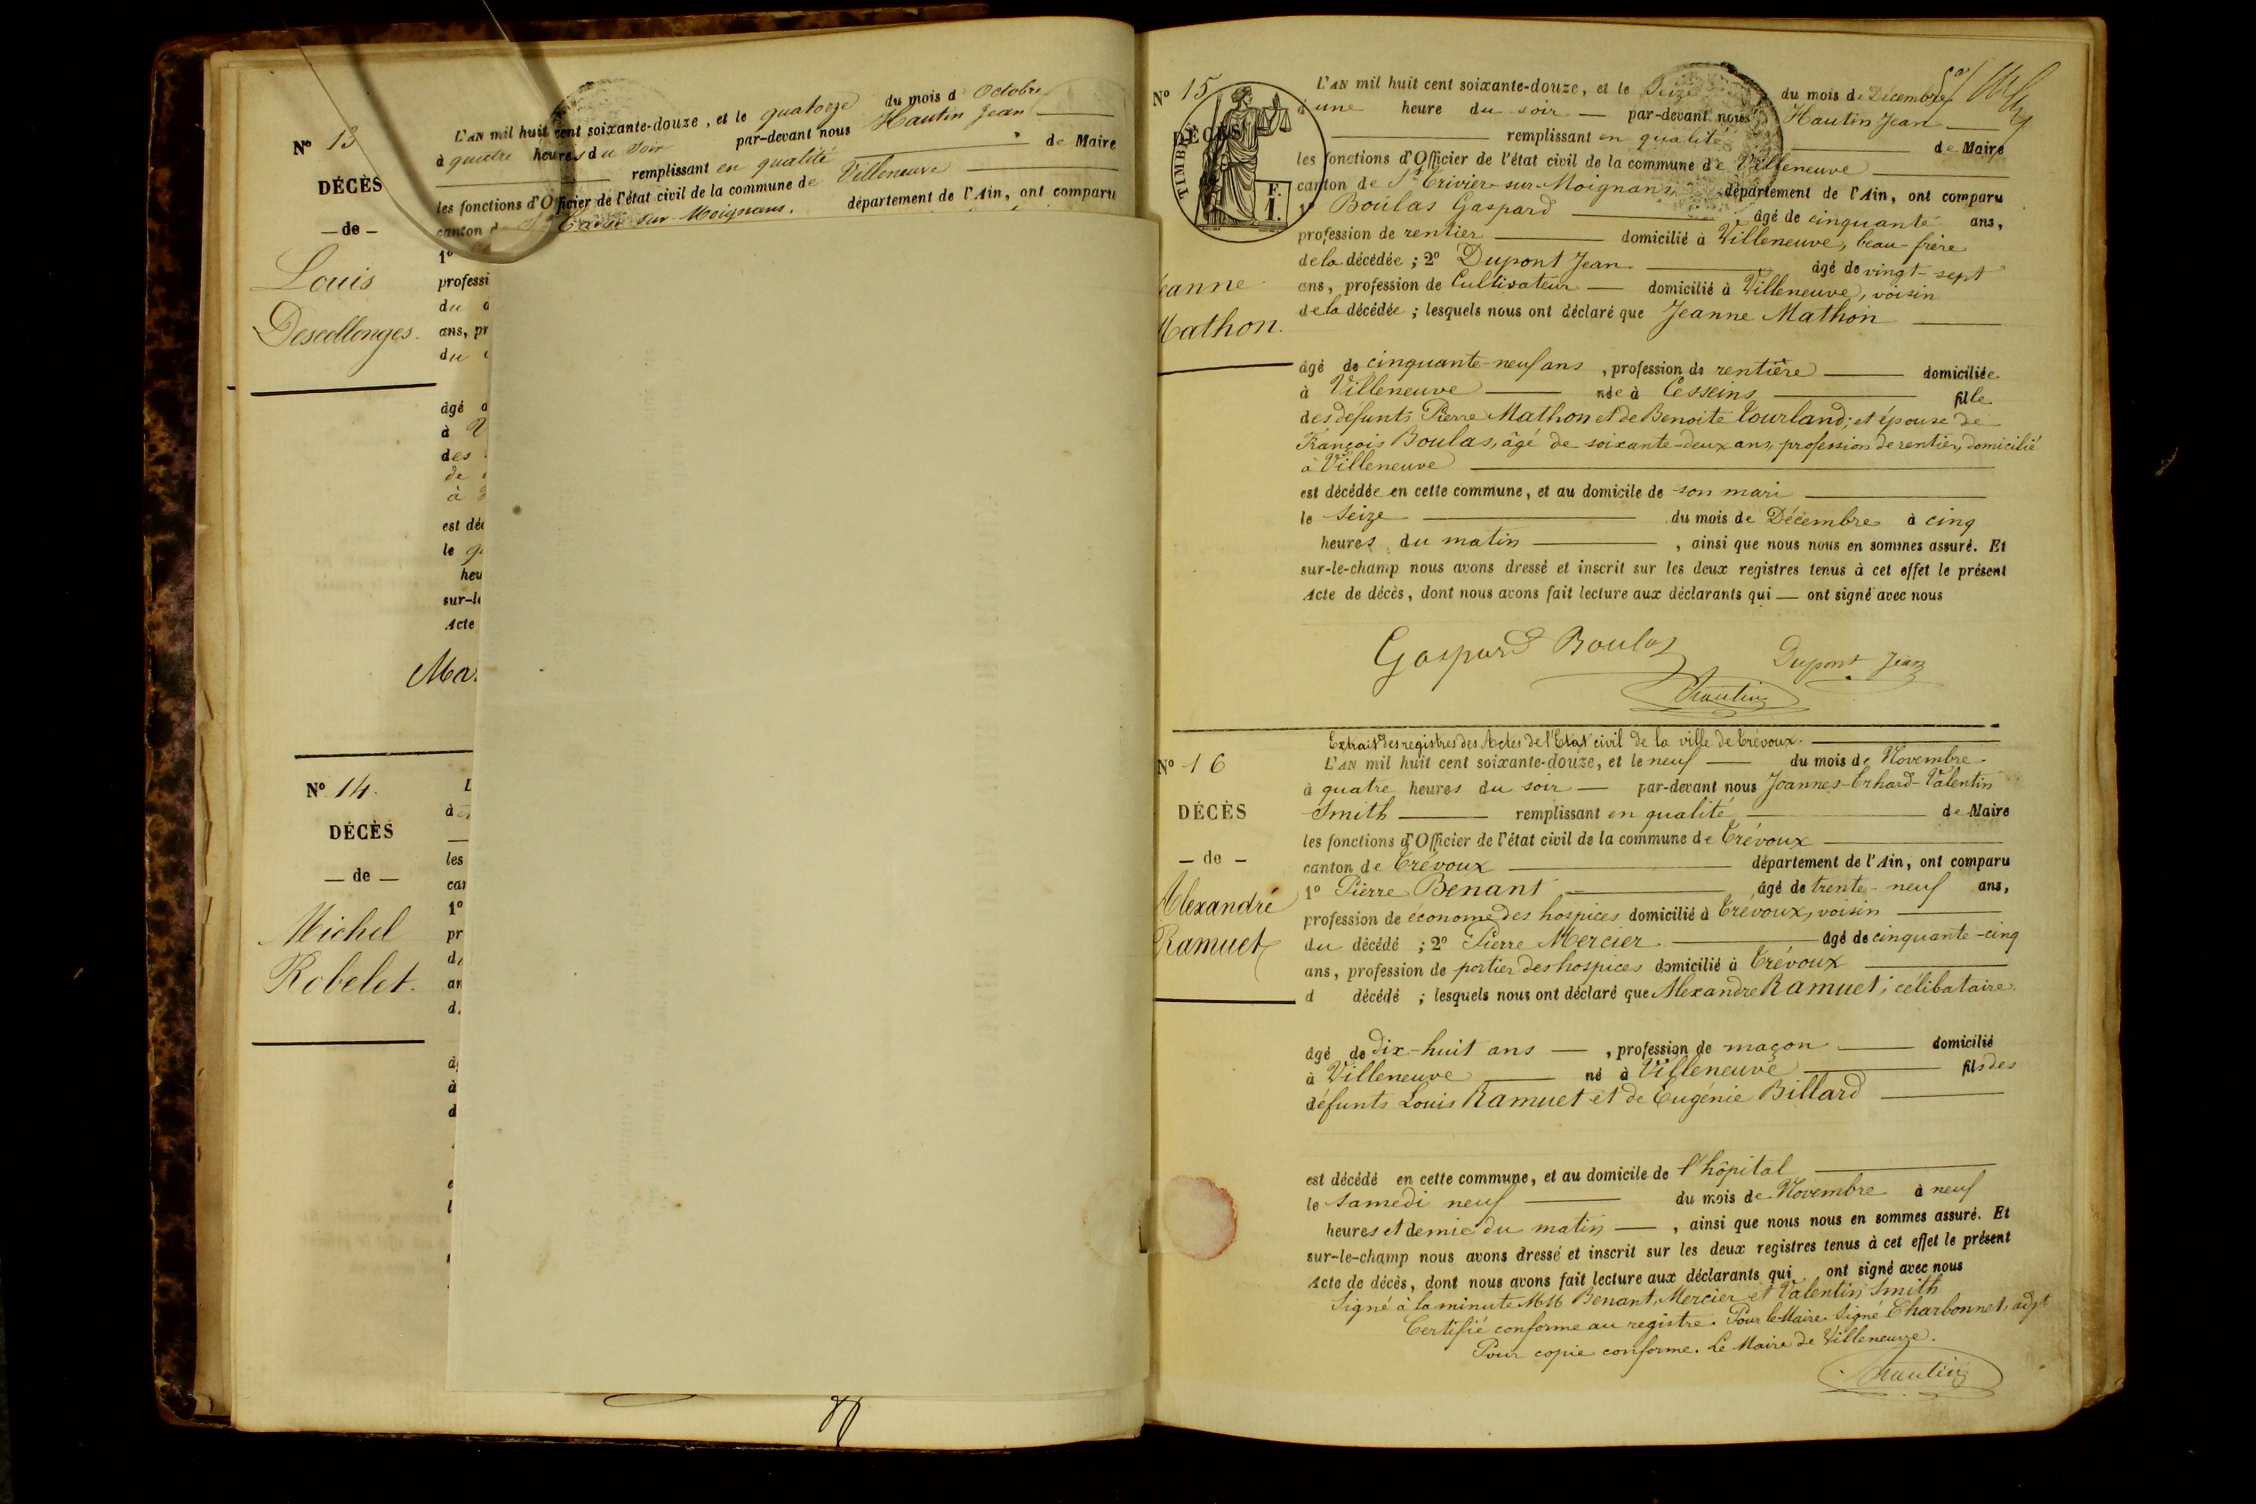 N° 13
DÉCÈS
— de —
Louis
Descollonges.
L'AN mil huit cent soixante-douze, et le quatorze du mois d'Octobre
à quatre heures du soir par-devant nous Hautin Jean
remplissant en qualité de Maire
les fonctions d'Officier de l'état civil de la commune de Villeneuve
canton de sur-Moignans. département de l'Ain, ont comparu
1°
professi
du
ans, pr
du
âgé
à V
des
de
à
est déc
le
heu
sur-le
Acte
Mar
N° 14.
DÉCÈS
— de —
Michel
Robelet.
L
à
les
can
1°
pr
d
an
d
à
d
N° 15
DÉCÈS
TIMB
F.
1.
Jeanne
Mathon.
L'AN mil huit cent soixante-douze, et le Seize du mois de Décembre
à une heure du soir — par-devant nous Hautin Jean
remplissant en qualité de Maire
les fonctions d'Officier de l'état civil de la commune de Villeneuve
canton de St Trivier-sur-Moignans, département de l'Ain, ont comparu
1° Boulas Gaspard, âgé de cinquante ans,
profession de rentier domicilié à Villeneuve, beau-frère
de la décédée ; 2° Dupont Jean âgé de vingt-sept
ans, profession de Cultivateur — domicilié à Villeneuve, voisin
de la décédée ; lesquels nous ont déclaré que Jeanne Mathon
âgé de cinquante-neuf ans, profession de rentière domiciliée
à Villeneuve née à Cesseins fille
des défunts Pierre Mathon et de Benoite Tourland; et épouse de
François Boulas, âgé de soixante-deux ans, profession de rentier, domicilié
à Villeneuve
est décédée en cette commune, et au domicile de son mari
le Seize du mois de Décembre à cinq
heures du matin, ainsi que nous nous en sommes assuré. Et
sur-le-champ nous avons dressé et inscrit sur les deux registres tenus à cet effet le présent
Acte de décès, dont nous avons fait lecture aux déclarants qui — ont signé avec nous
Gaspard Boulas Dupont Jean
Hautin
N° 16
DÉCÈS
— de —
Alexandre
Ramuet
Extrait des registres des Actes de l'Etat civil de la ville de Trévoux.
L'AN mil huit cent soixante-douze, et le neuf — du mois de Novembre
à quatre heures du soir — par-devant nous Joannes-Erhard-Valentin
Smith remplissant en qualité de Maire
les fonctions d'Officier de l'état civil de la commune de Trévoux
canton de Trévoux département de l'Ain, ont comparu
1° Pierre Benant âgé de trente-neuf ans,
profession de économe des hospices domicilié à Trévoux, voisin
du décédé ; 2° Pierre Mercier âgé de cinquante-cinq
ans, profession de portier des hospices domicilié à Trévoux
d décédé ; lesquels nous ont déclaré que Alexandre Ramuet, célibataire
âgé de dix-huit ans —, profession de maçon domicilié
à Villeneuve né à Villeneuve fils des
défunts Louis Ramuet et de Eugénie Billard
est décédé en cette commune, et au domicile de l'hôpital
le samedi neuf du mois de Novembre à neuf
heures et demie du matin —, ainsi que nous nous en sommes assuré. Et
sur-le-champ nous avons dressé et inscrit sur les deux registres tenus à cet effet le présent
Acte de décès, dont nous avons fait lecture aux déclarants qui ont signé avec nous
Signé à la minute MM Benant, Mercier et Valentin Smith
Certifié conforme au registre. Pour le Maire. Signé Charbonnet, adjt
Pour copie conforme. Le Maire de Villeneuve.
Hautin